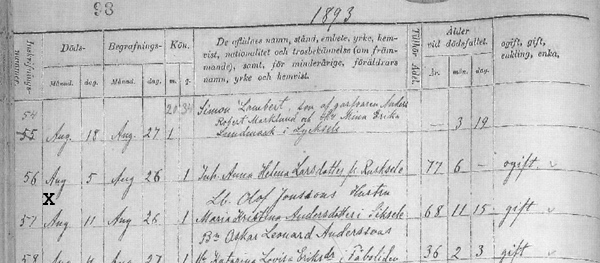 98
1893
Instrifnings-nummer.
Döds- Begrafnings- Kön. De aflidnas namn, stånd, embete, yrke, hem-vist, nationalitet och trosbekännelse (om främ-mande), samt, för minderårige, föräldrars namn, yrke och hemvist. Tillhör Afd. Ålder vid dödsfallet. ogift, gift, enkling, enka.
Månad. dag. Månad. dag. m. q. år. mån. dag.
54 20 34 Simon Lambert, son af garfvaren Anders
55 Aug. 18 Aug. 27 1 Robert Marklund och Mina Erika
i Lycksele — 3 19
56 Aug 5 Aug 26 1 Anna Helena Larsdotter fr. Rusksele 77 6 — ogift
X
Lb. Olof Jonssons Hustru
57 Aug 11 Aug 26 1 Maria Kristina Andersdotter i Siksele 68 11 15 gift
Bn Oskar Leonard Anderssons
58 27 1 Katarina Lovisa i Fäboliden 36 2 3 gift